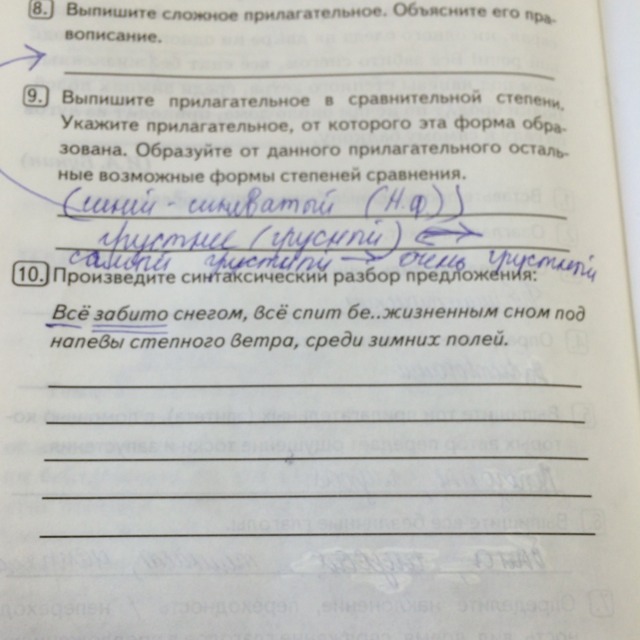 8. Выпишите сложное прилагательное. Объясните его пра-
вописание.
9. Выпишите прилагательное в сравнительной степени,
Укажите прилагательное, от которого эта форма обра-
зована. Образуйте от данного прилагательного осталь-
ные возможные формы степеней сравнения.
(синий - синеватый (Н.ф))
грустнее (грусной)
самый грустный → очень грустный
10. Произведите синтаксический разбор предложения:
Всё забито снегом, всё спит бе..жизненным сном под
напевы степного ветра, среди зимних полей.